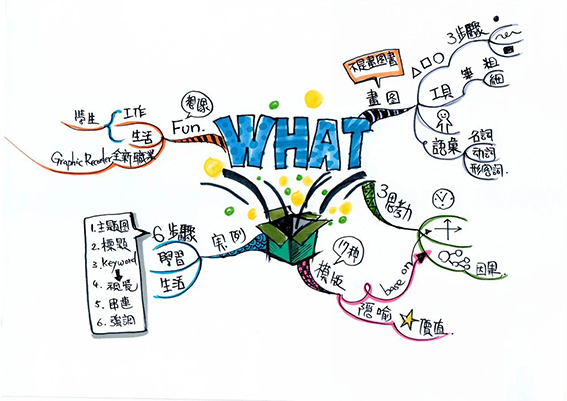 WHAT
想像
Fun.
工作
學生
生活
Graphic Recorder 全新職業
不是畫圖書
畫图
3步驟
工具
筆
粗
細
語彙
名詞
动詞
形容詞.
3思考力
因果.
17種
模版
base on
隱喻
價值.
实例
6步驟
學習
生活
1.主題图
2.標題
3.Keyword
4.視覺
5.串連
6.強調